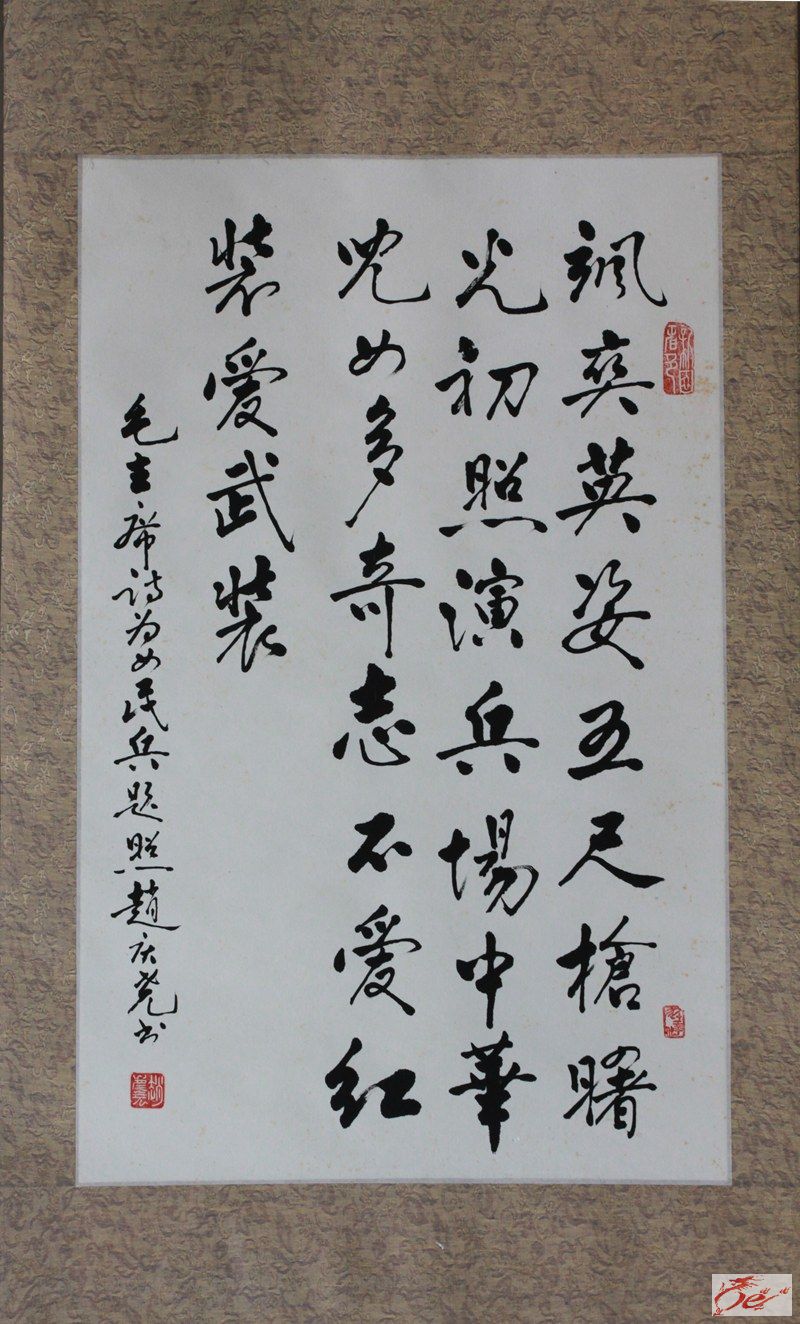 颯爽英姿五尺槍曙
光初照演兵場中華
兒女多奇志不愛紅
装愛武装
毛主席诗为女民兵题照趙庆堯书